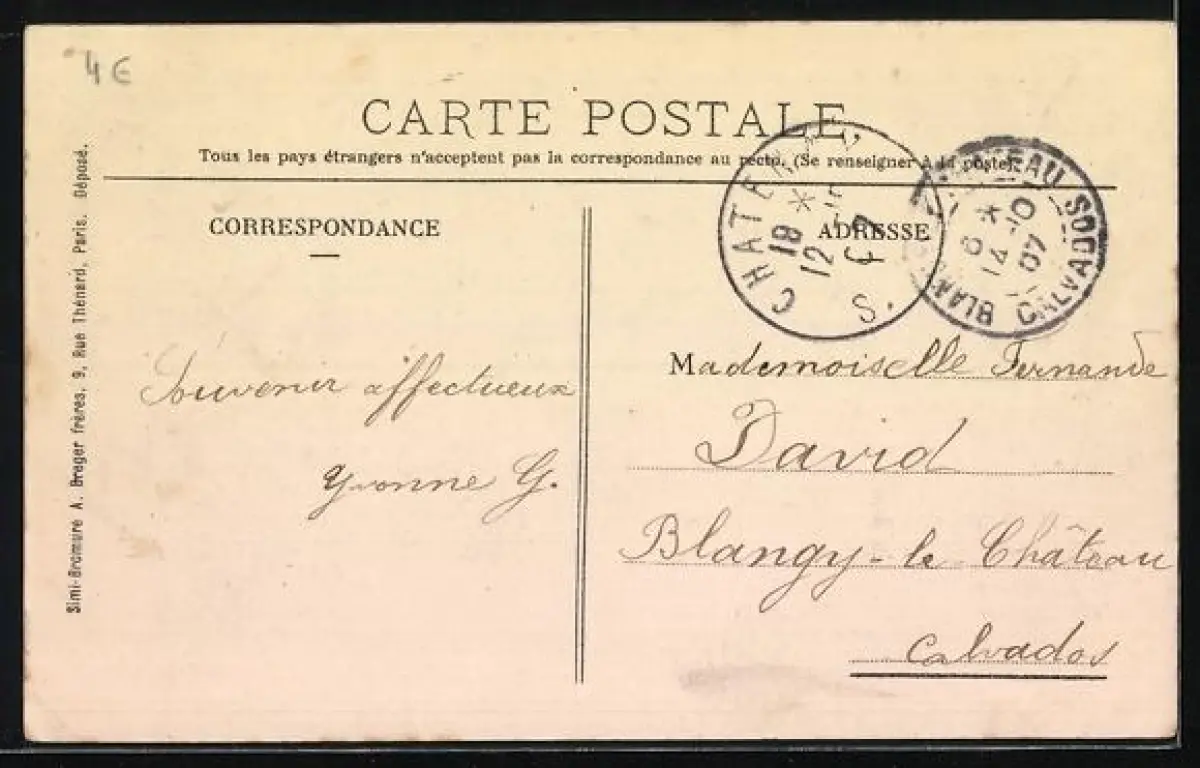 4 €
CARTE POSTALE
Tous les pays étrangers n'acceptent pas la correspondance au recto. (Se renseigner à la poste).
CORRESPONDANCE
ADRESSE
CHATEN
18 *
12
07
S.
EAU CALVADOS
6 *
14 -10
07
BLAN
Souvenir affectueux
Yvonne G.
Mademoiselle Fernande
David
Blangy-le Château
Calvados
Simi-Bromure A. Breger frères, 9, Rue Thénard, Paris. Déposé.